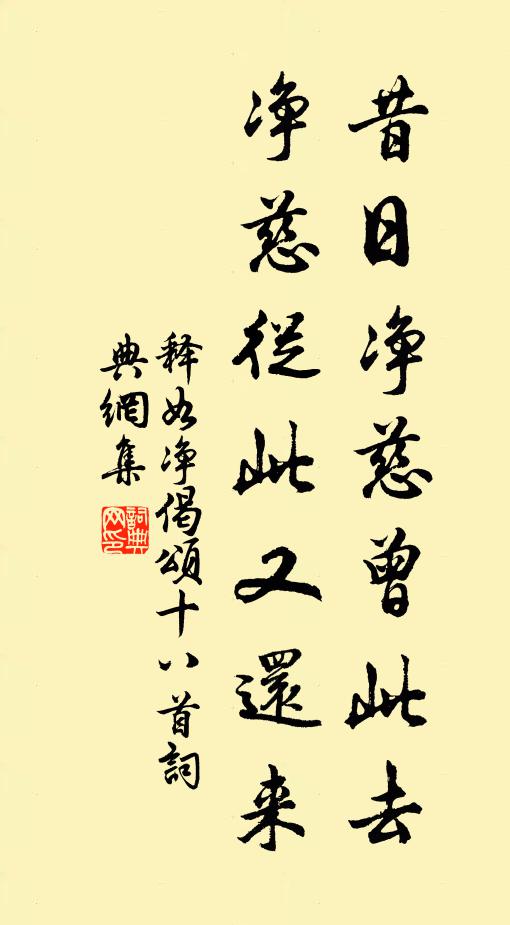 昔日净慈曾此去
净慈從此又還来
释如净偈頌十八首詞
典網集
詞典网印